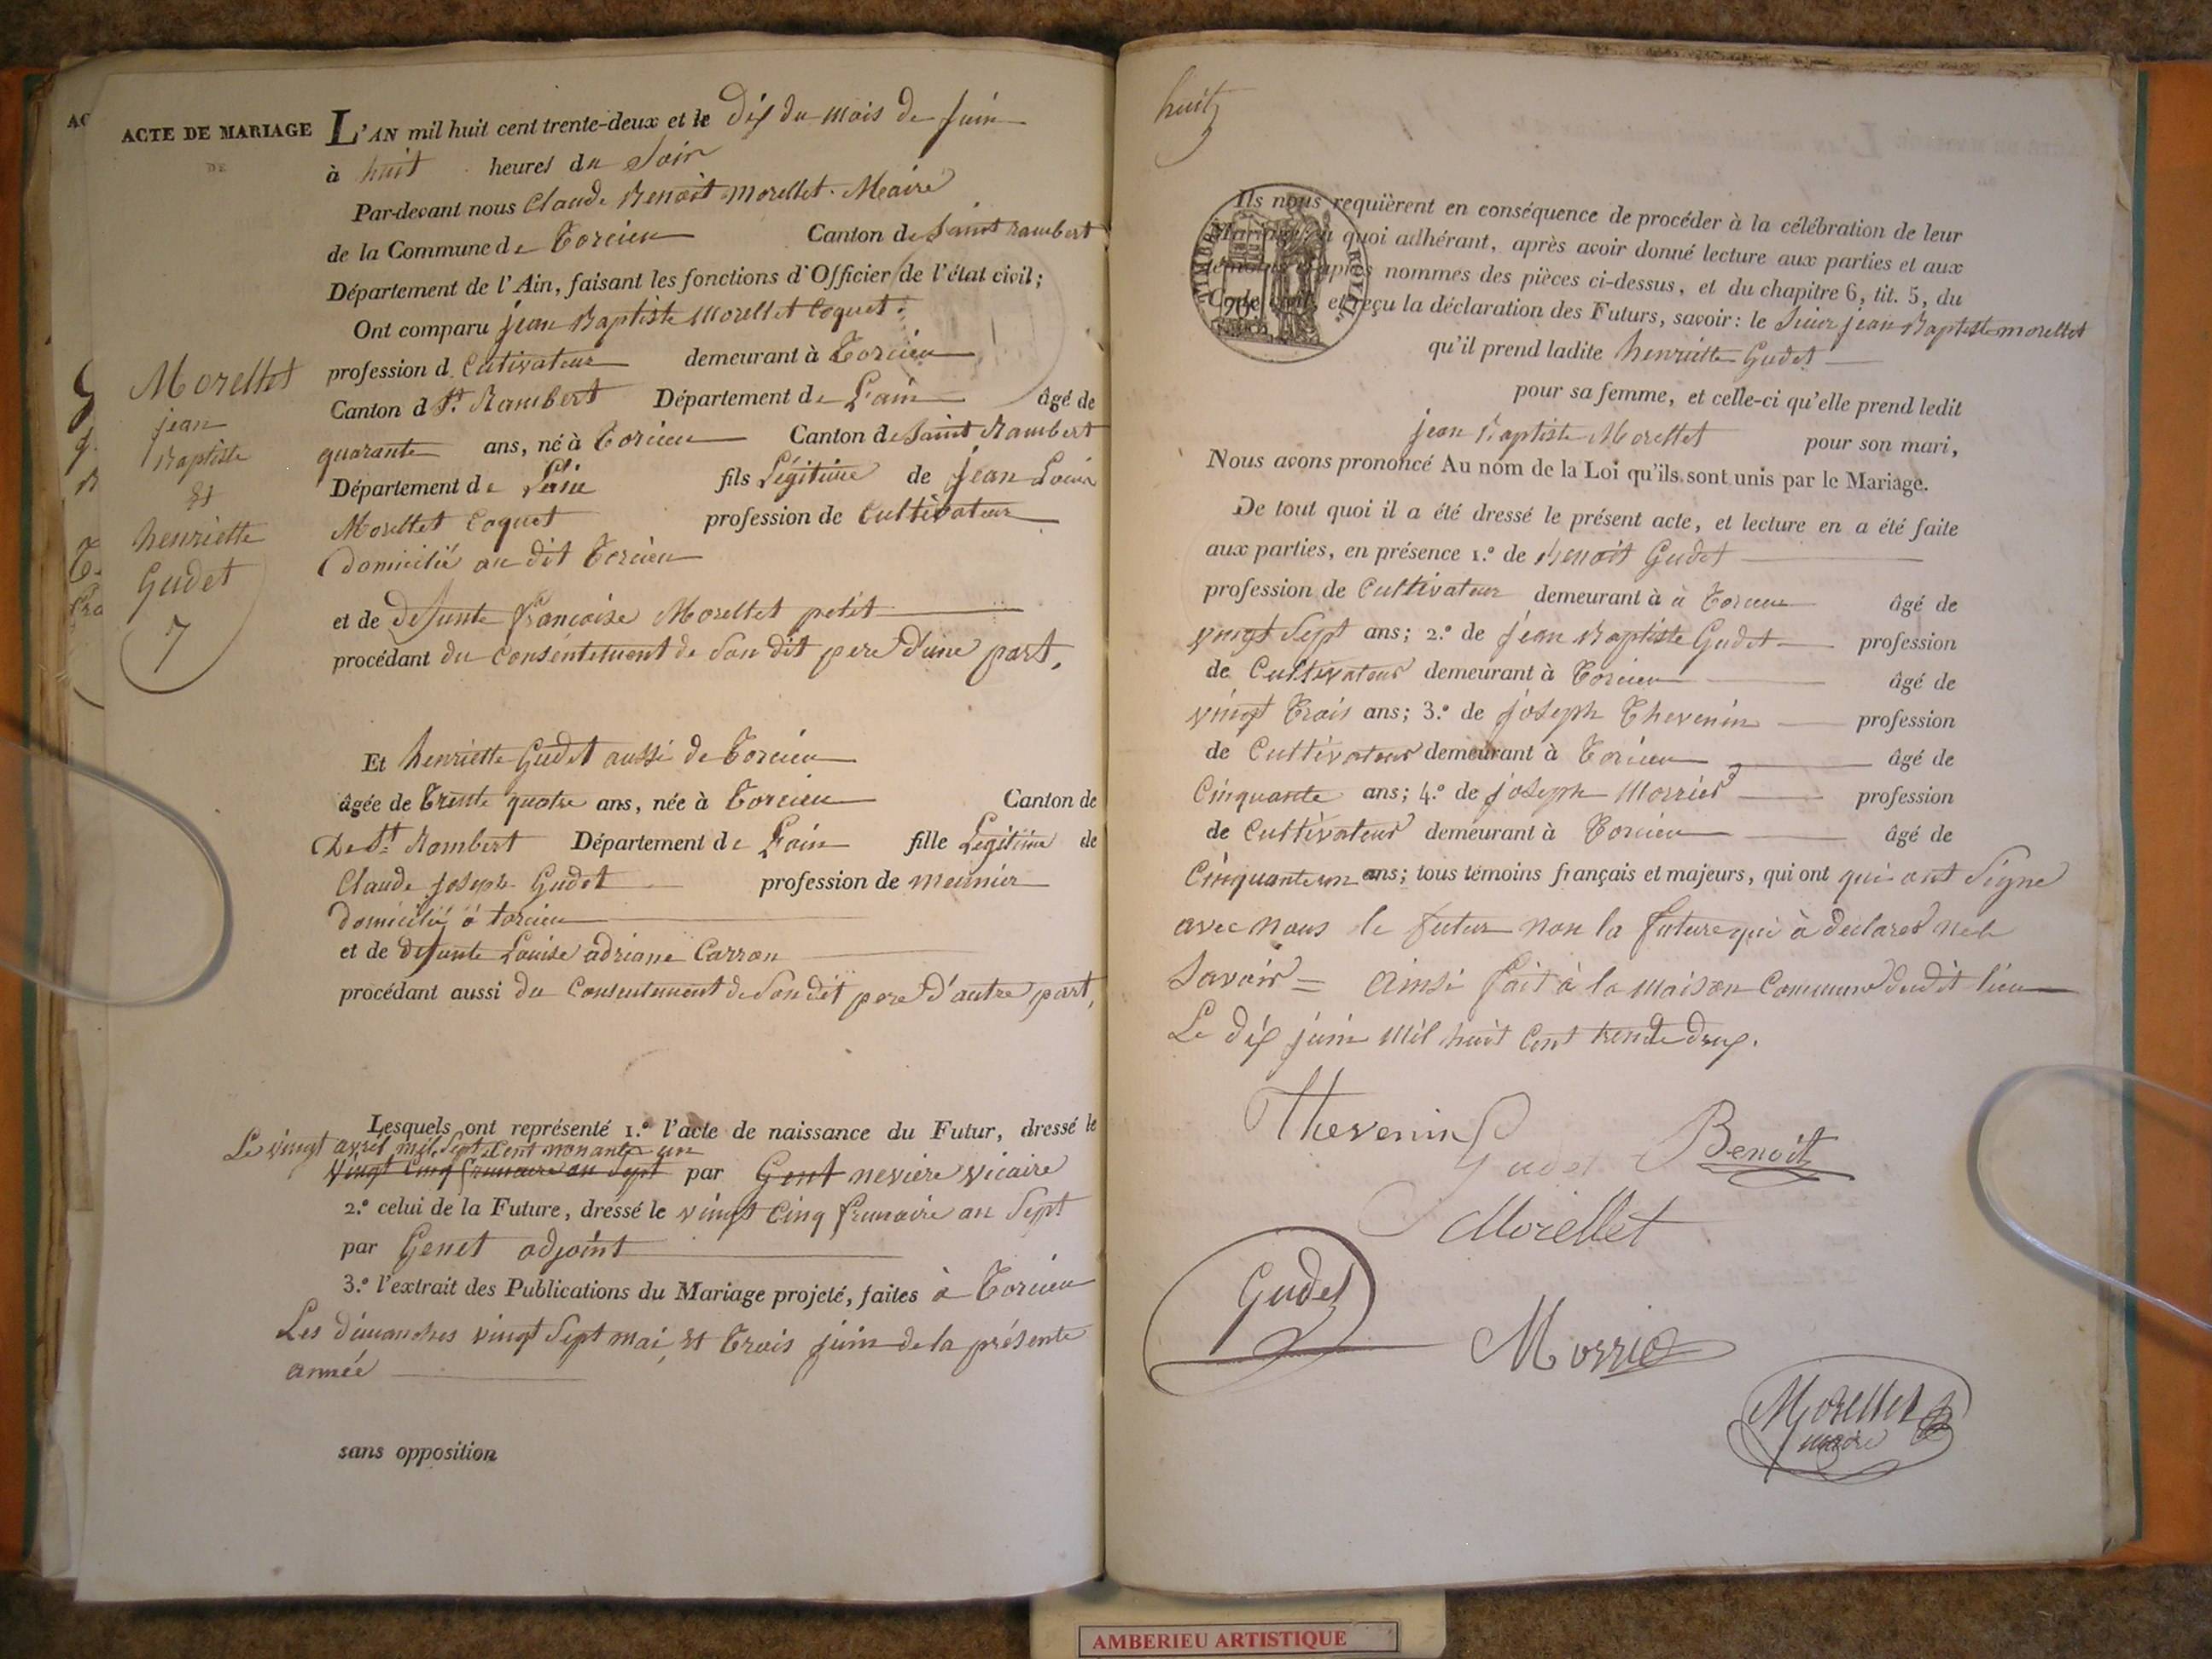 ACTE DE MARIAGE
DE
Morellet
jean
Baptiste
Et
henriette
Gudet
7
L'AN mil huit cent trente-deux et le Dix du mois de Juin
à huit heures du Soir
Par-devant nous Claude Benoit Morellet Maire
de la Commune de Torcieu Canton de Saint rambert
Département de l'Ain, faisant les fonctions d'Officier de l'état civil;
Ont comparu jean Baptiste Morellet Coquet
profession d Cutivateur demeurant à Torcieu
Canton d St. Rambert Département de L'ain âgé de
quarante ans, né à Torcieu Canton de Saint Rambert
Département de L'ain fils Légitime de jean Louis
Morellet Coquet profession de Cultivateur
domicilié au dit Torcieu
et de defunte françoise Morellet petit
procédant du Consentement de Son dit pere d'une part,
Et henriette Gudet aussi de Torcieu
âgée de Trente quatre ans, née à Torcieu Canton de
De St. Rambert Département de L'ain fille Légitime de
Claude joseph Gudet profession de meunier
domicilié à torcieu
et de defunte Louise adriane Carron
procédant aussi du Consentement de Son dit pere d'autre part,
Lesquels ont représenté 1.º l'acte de naissance du Futur, dressé le
Le vingt avril mil Sept Cent nonante un
vingt Cinq frimaire an Sept par Gent neviere vicaire
2.º celui de la Future, dressé le vingt Cinq frimaire an Sept
par Genet adjoint
3.º l'extrait des Publications du Mariage projeté, faites à Torcieu
Les dimanches vingt Sept mai, Et Trois juin de la présente
année
sans opposition
huit
TIMBRE ROYAL
70
Ils nous requièrent en conséquence de procéder à la célébration de leur
Mariage; à quoi adhérant, après avoir donné lecture aux parties et aux
témoins ci-après nommés des pièces ci-dessus, et du chapitre 6, tit. 5, du
Code civil, et reçu la déclaration des Futurs, savoir: le Sieur jean Baptiste morellet
qu'il prend ladite henriette Gudet
pour sa femme, et celle-ci qu'elle prend ledit
jean Baptiste Morellet pour son mari,
Nous avons prononcé Au nom de la Loi qu'ils sont unis par le Mariage.
De tout quoi il a été dressé le présent acte, et lecture en a été faite
aux parties, en présence 1.º de Benoit Gudet
profession de Cultivateur demeurant à à Torcieu âgé de
vingt Sept ans; 2.º de jean Baptiste Gudet profession
de Cultivateur demeurant à Torcieu âgé de
vingt Trois ans; 3.º de joseph Thevenin profession
de Cultivateur demeurant à Torcieu âgé de
Cinquante ans; 4.º de joseph Morrier profession
de Cultivateur demeurant à Torcieu âgé de
Cinquante un ans; tous témoins français et majeurs, qui ont qui ont Signe
avec nous le futur non la future qui à declarer ne le
Savoir = Ainsi fait à la maison Commune dudit lieu
Le dix juin Mil huit Cent trente deux.
Thevenin
Gudet Benoit
Morellet
Gudet
Morrie
Morellet
maire
AMBERIEU ARTISTIQUE